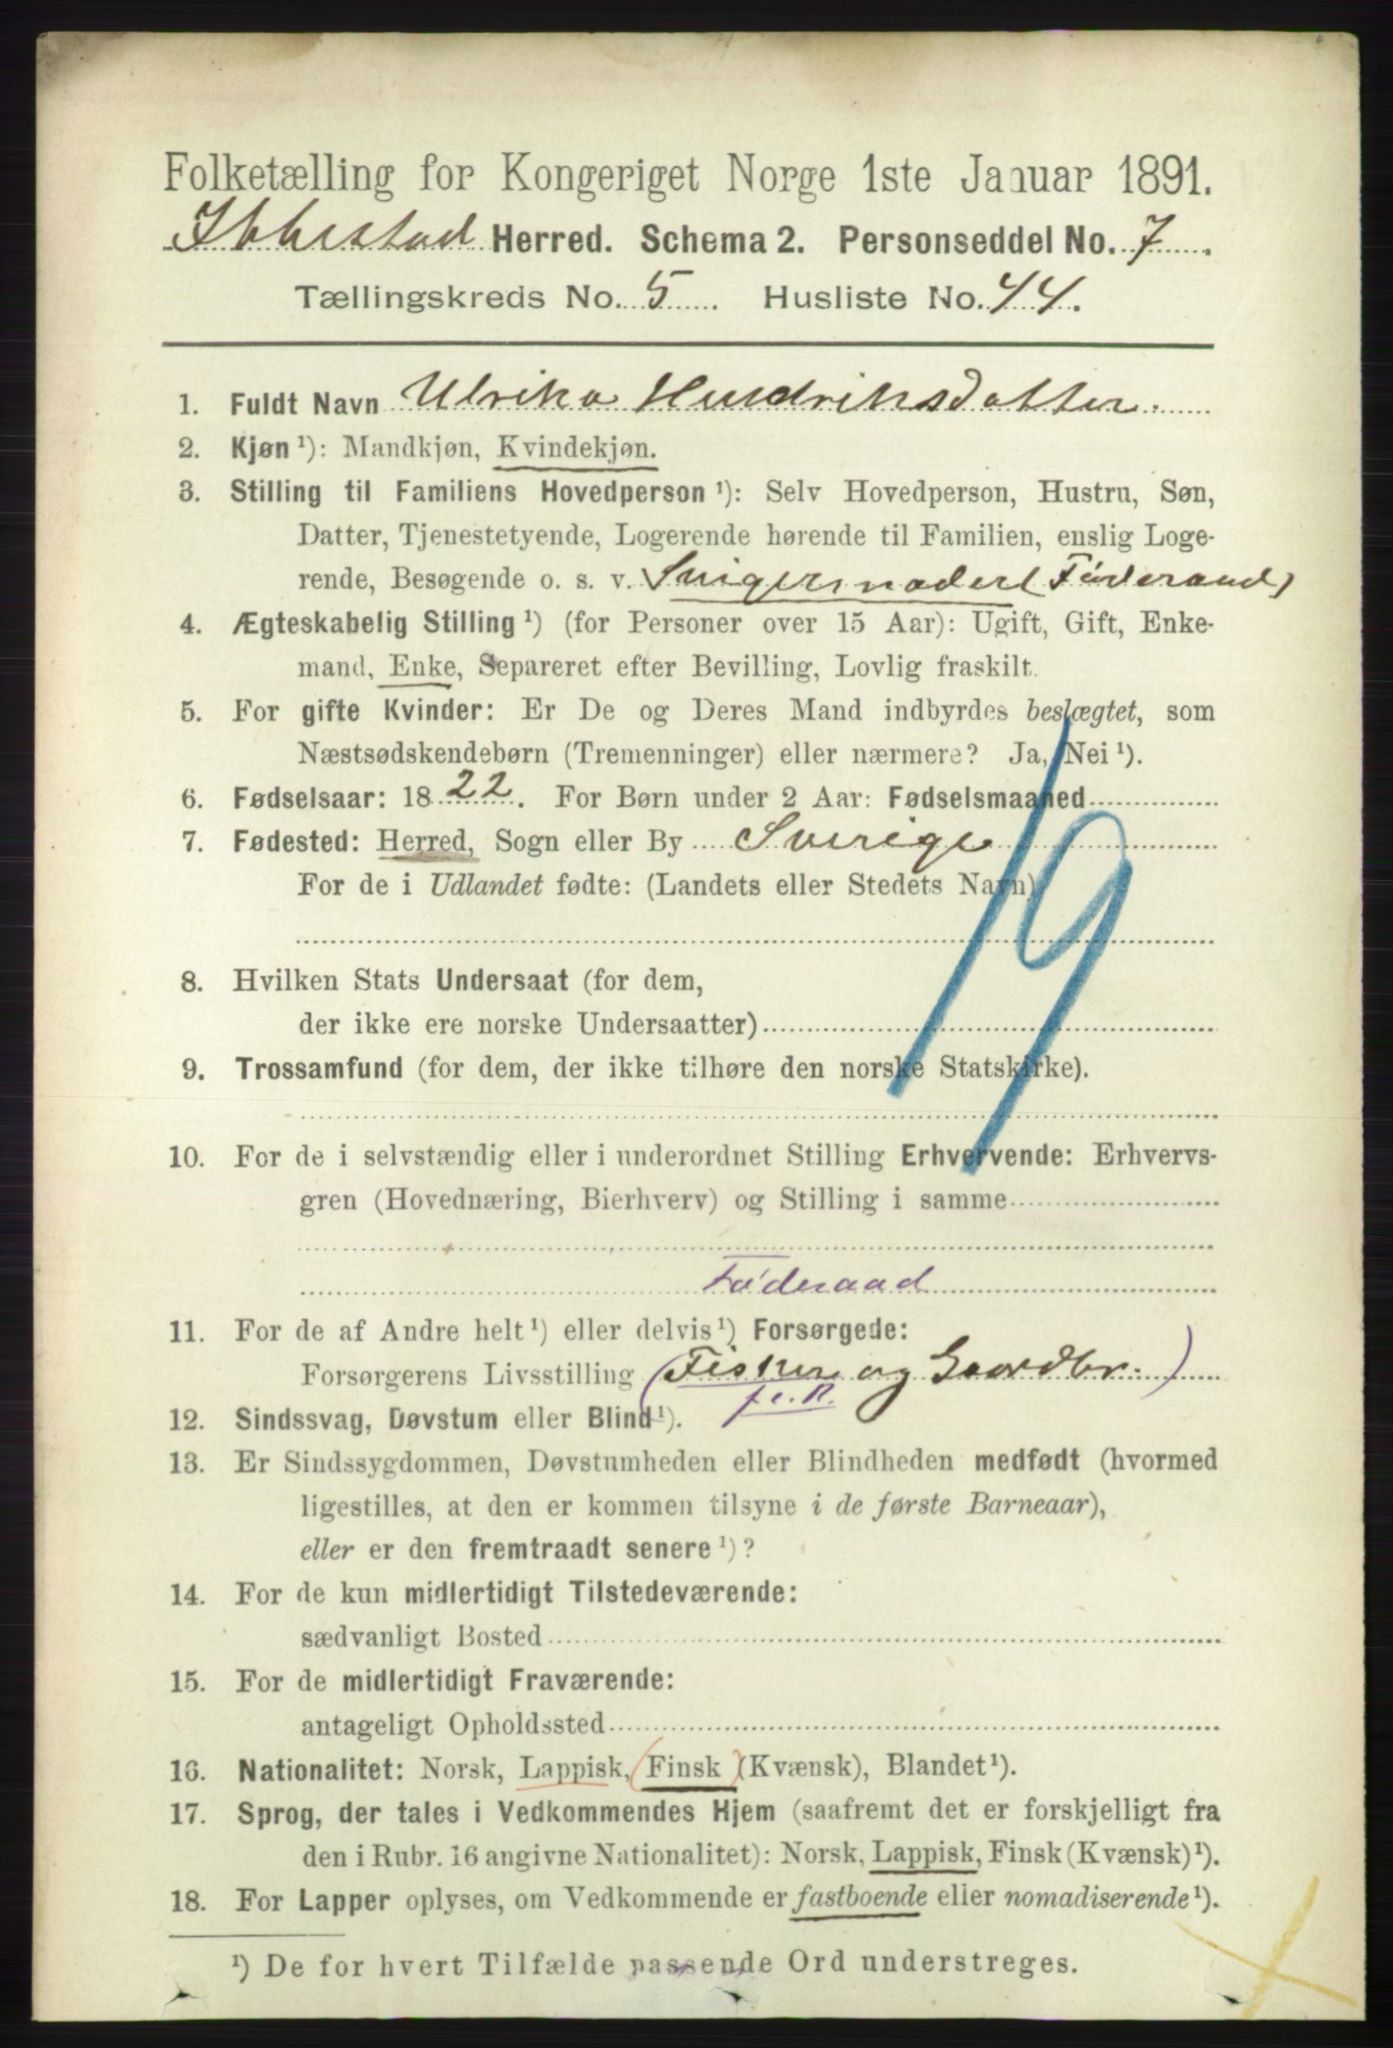 Folketælling for Kongeriget Norge 1ste Januar 1891.
Ibbestad Herred. Schema 2. Personseddel No. 7.
Tællingskreds No. 5. Husliste No. 44.
1. Fuldt Navn Ulrika Hendriksdatter.
2. Kjøn ¹): Mandkjøn, Kvindekjøn.
3. Stilling til Familiens Hovedperson ¹): Selv Hovedperson, Hustru, Søn,
Datter, Tjenestetyende, Logerende hørende til Familien, enslig Loge-
rende, Besøgende o. s. v. Svigermoder (Föderaad)
4. Ægteskabelig Stilling ¹) (for Personer over 15 Aar): Ugift, Gift, Enke-
mand, Enke, Separeret efter Bevilling, Lovlig fraskilt.
5. For gifte Kvinder: Er De og Deres Mand indbyrdes beslægtet, som
Næstsødskendebørn (Tremenninger) eller nærmere? Ja, Nei ¹).
6. Fødselsaar: 1822. For Børn under 2 Aar: Fødselsmaaned
7. Fødested: Herred, Sogn eller By Sverige
For de i Udlandet fødte: (Landets eller Stedets Navn)
19
8. Hvilken Stats Undersaat (for dem,
der ikke ere norske Undersaatter)
9. Trossamfund (for dem, der ikke tilhøre den norske Statskirke).
10. For de i selvstændig eller i underordnet Stilling Erhvervende: Erhvervs-
gren (Hovednæring, Bierhverv) og Stilling i samme
Föderaad
11. For de af Andre helt ¹) eller delvis ¹) Forsørgede:
Forsørgerens Livsstilling (Fisker og Gaardbr.)
12. Sindssvag, Døvstum eller Blind ¹).
13. Er Sindssygdommen, Døvstumheden eller Blindheden medfødt (hvormed
ligestilles, at den er kommen tilsyne i de første Barneaar),
eller er den fremtraadt senere ¹)?
14. For de kun midlertidigt Tilstedeværende:
sædvanligt Bosted
15. For de midlertidigt Fraværende:
antageligt Opholdssted
16. Nationalitet: Norsk, Lappisk, (Finsk) (Kvænsk), Blandet ¹).
17. Sprog, der tales i Vedkommendes Hjem (saafremt det er forskjelligt fra
den i Rubr. 16 angivne Nationalitet): Norsk, Lappisk, Finsk (Kvænsk) ¹).
18. For Lapper oplyses, om Vedkommende er fastboende eller nomadiserende ¹).
¹) De for hvert Tilfælde passende Ord understreges.